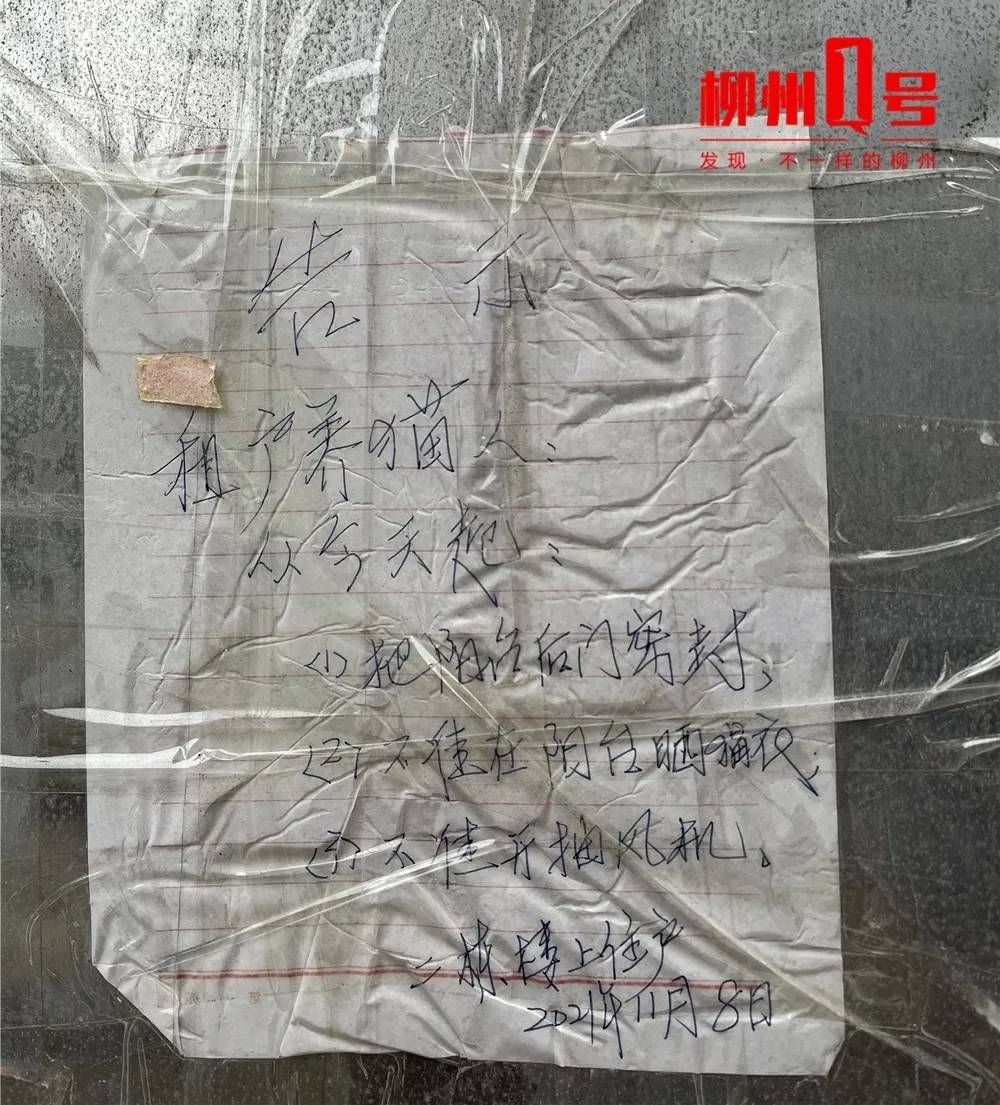 柳州Q号
发现·不一样的柳州
告示
租户养猫人：
从今天起：
(1)把阳台后门密封；
(2)不准在阳台晒猫衣；
(3)不准开抽风机。
二栋楼上住户
2021年11月8日